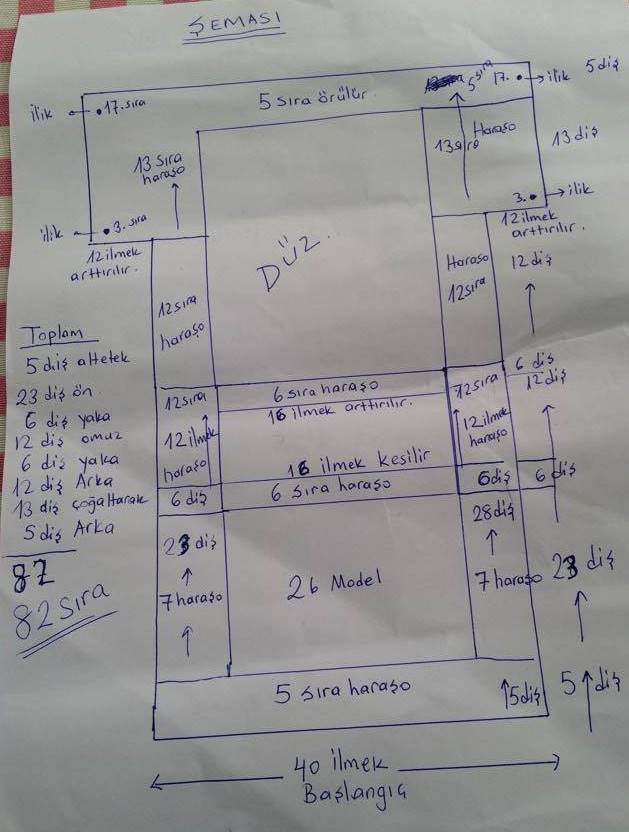 ŞEMASI
5 sıra
17. → ilik 5 diş
ilik ← 17. sıra
5 sıra örülür.
13 sıra
haraşo
13 sıra
Haraşo
13 diş
3. → ilik
ilik ← 3. sıra
12 ilmek
arttırılır.
12 ilmek
arttırılır.
DÜZ.
12 sıra
haraşo
Haraşo
12 sıra
12 diş
Toplam
5 diş altetek
23 diş ön
6 diş yaka
12 diş omuz
6 diş yaka
12 diş Arka
13 diş çoğaltarak
5 diş Arka
87
82 sıra
12 sıra
12 ilmek
haraşo
6 sıra haraşo
16 ilmek arttırılır.
12 sıra
12 ilmek
haraşo
6 diş
12 diş
16 ilmek kesilir
6 sıra haraşo
6 diş
6 diş
6 diş
23 diş
7 haraşo
26 Model
28 diş
7 haraşo
23 diş
5 sıra haraşo
5 diş
5 diş
40 ilmek
Başlangıç